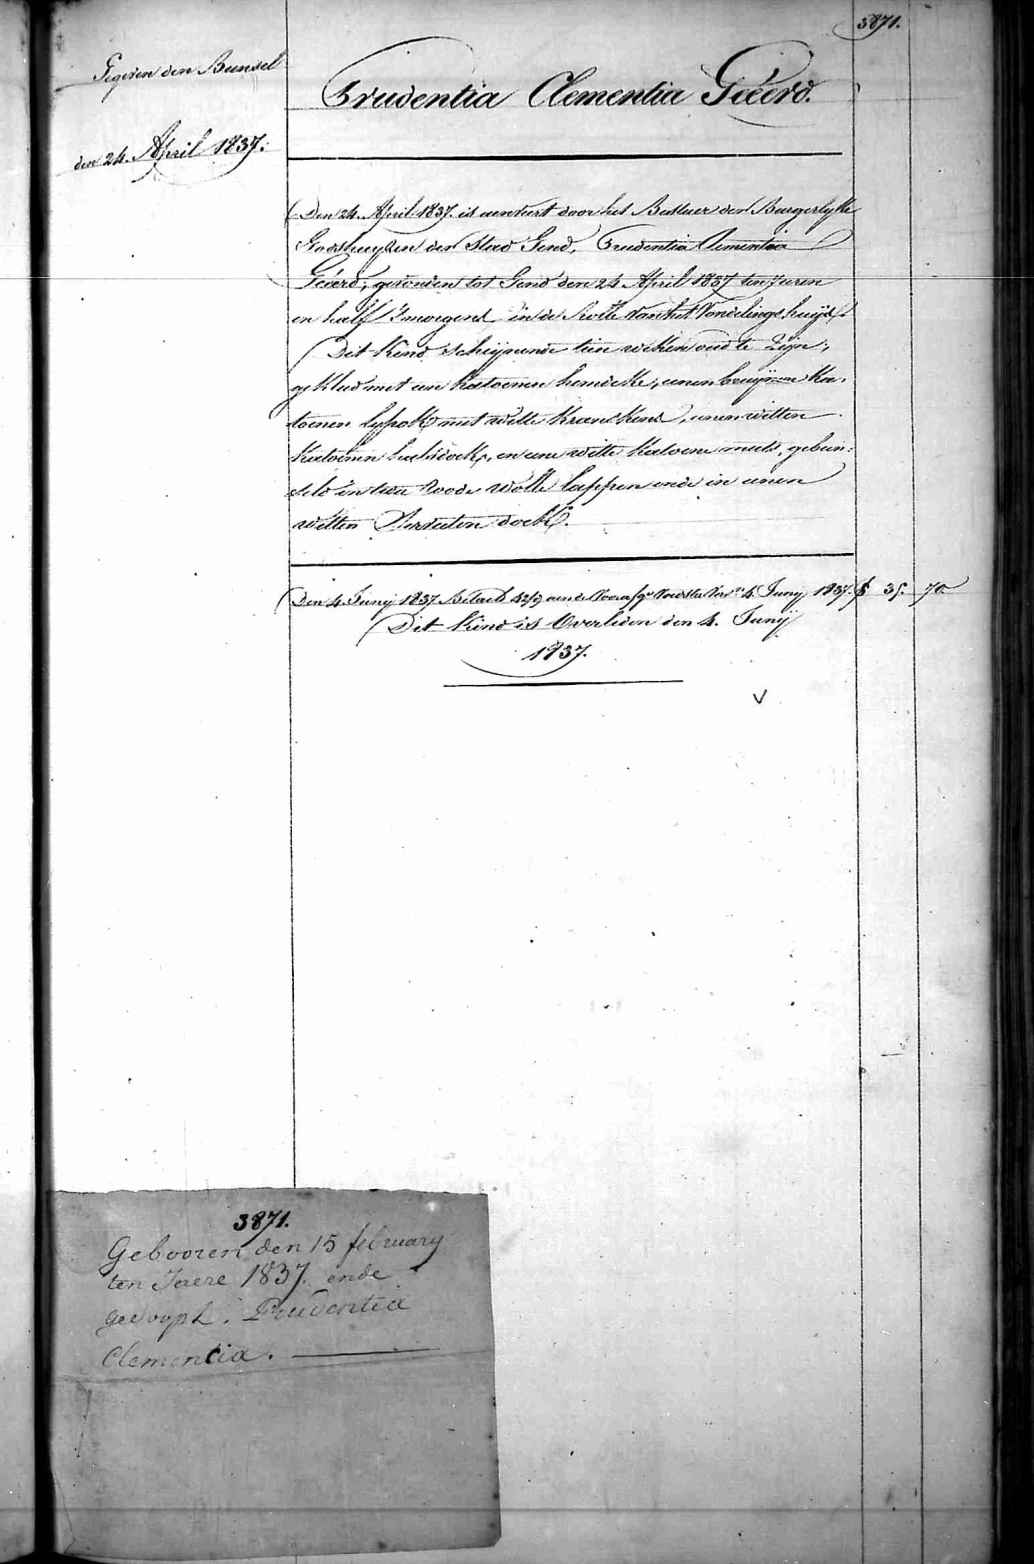 3871.
Gegeven den Bunsel
den 24. April 1837.
Prudentia Clementia Géérd.
Den 24. April 1837. is aenveert door het Bestuer der Burgerlyke
Godshuyzen der Stad Gend, Prudentia Clementia
Géérd, gevonden tot Gend den 24 April 1837 ten 7 uren
en half 's morgens in de Rolle van het Vondelings huijs.
Dit Kind scheijnende tien weken oud te Zijn,
gekleed met een katoenen hemdeke, eenen bruijnen Ka-
toenen lyfrok met witte kranskens, eenen witten
katoenen halsdoek, en eene witte katoene muts, gebun-
seld in twee roode wolle lappen ende in eenen
witten doek.
Den 4. Junij 1837 Betaeld aen de 4 Junij 1837. 35. 70.
Dit Kind is Overleden den 4. Junij
1837.
3871.
Gebooren den 15 februarij
ten Jaere 1837. ende
gedoopt. Prudentia
Clementia.